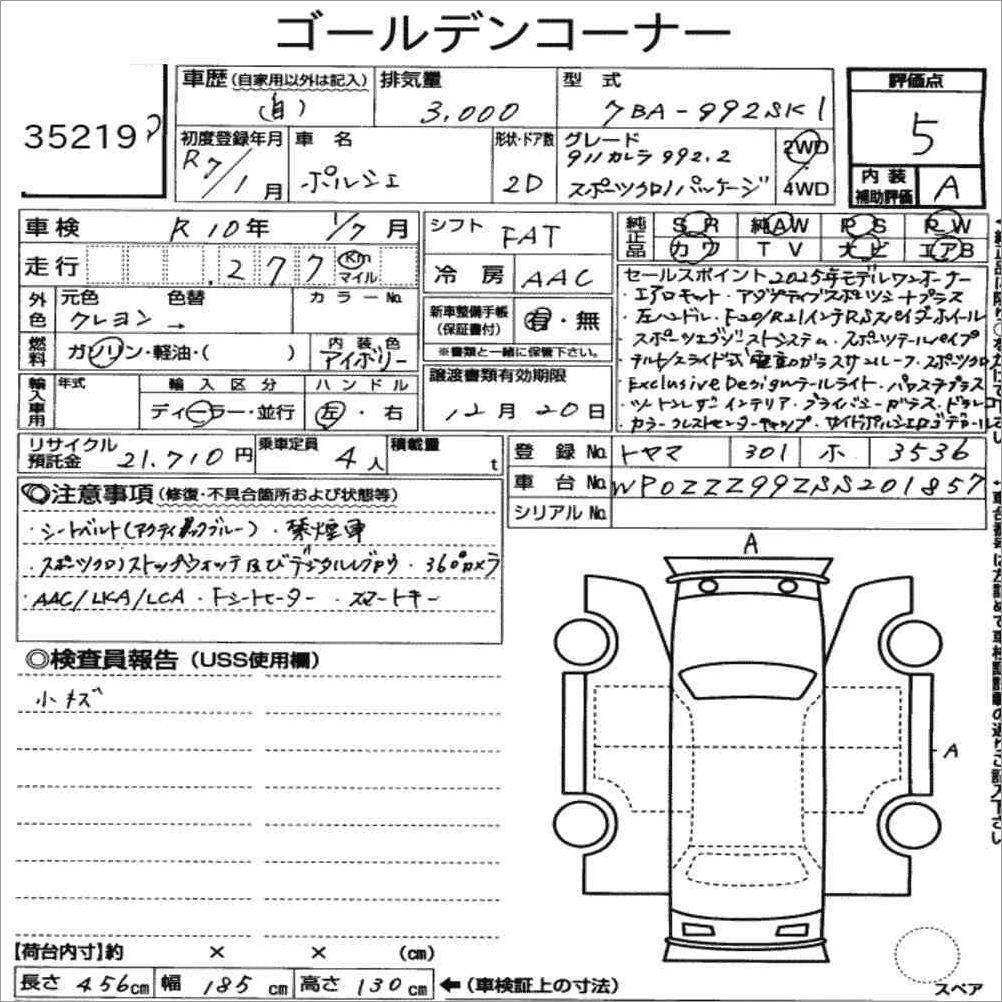 ゴールデンコーナー
35219
車歴(自家用以外は記入) (自)
排気量 3,000
型式 7BA-992SK1
評価点 5
初度登録年月 R7/1月
車名 ポルシェ
形状・ドア数 2D
グレード 911カレラ 992.2
スポーツクロノパッケージ
2WD
4WD
内装補助評価 A
車検 R10年 1/7月
シフト FAT
純正品 SR 純AW PS PW
カワ TV 大ビ エアB
走行 277 Km マイル
冷房 AAC
外色 元色 クレヨン → 色替 カラーNo.
新車整備手帳(保証書付) 有・無
※書類と一緒に保管下さい。
燃料 ガソリン・軽油・( )
内装色 アイボリー
輸入車用 年式 輸入区分 ディーラー・並行 ハンドル 左・右
譲渡書類有効期限
12月20日
セールスポイント 2025年モデルワンオーナー
・エアロキット・アダプティブスポーツシートプラス
・左ハンドル・F20/R21インチRSスパイダーホイール
・スポーツエグゾーストシステム・スポーツテールパイプ
チルト/スライド式電動ガラスサンルーフ・スポーツクロノ
Exclusive Designテールライト・パワステプラス
ツートンレザーインテリア・プライバシーガラス・ドラレコ
・カラークレストセンターキャップ・サイドポルシェロゴデカール
リサイクル預託金 21,710円
乗車定員 4人
積載量 t
登録No. トヤマ 301 ホ 3536
車台No. WP0ZZZ99ZSS201857
シリアルNo.
◎注意事項(修復・不具合箇所および状態等)
・シートベルト(アクティブブルー)・禁煙車
・スポーツクロノストップウォッチ及びデジタルレブカウ・360°カメラ
・AAC/LKA/LCA・Fシートヒーター・スマートキー
◎検査員報告(USS使用欄)
小キズ
A
A
スペア
【荷台内寸】約 × × (cm)
長さ 456cm 幅 185cm 高さ 130cm ←(車検証上の寸法)